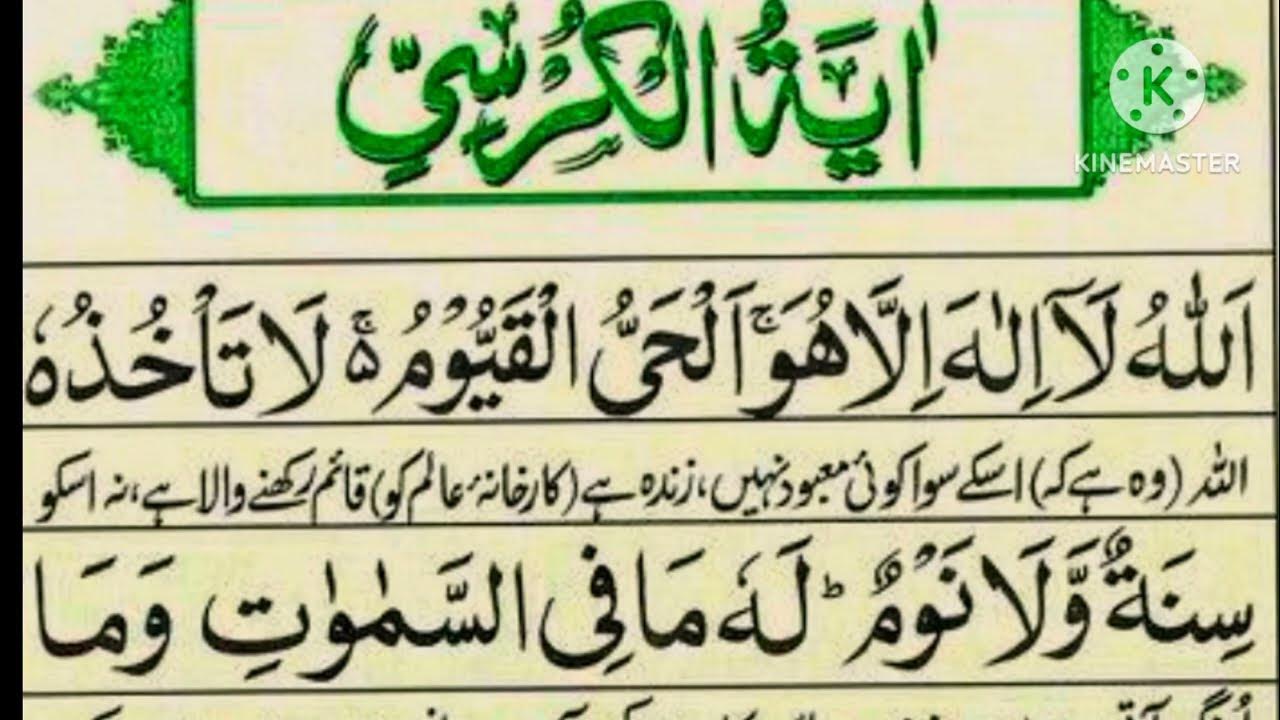 اٰيَةُ الْكُرْسِيِّ
K
KINEMASTER
اَللّٰهُ لَاۤ اِلٰهَ اِلَّا هُوَ ۚ اَلْحَىُّ الْقَيُّوْمُ ۵ۚ لَا تَاْخُذُهٗ
اللہ (وہ ہے کہ) اسکے سوا کوئی معبود نہیں، زندہ ہے (کارخانۂ عالم کو) قائم رکھنے والا ہے، نہ اسکو
سِنَةٌ وَّلَا نَوْمٌ ؕ لَهٗ مَا فِى السَّمٰوٰتِ وَمَا